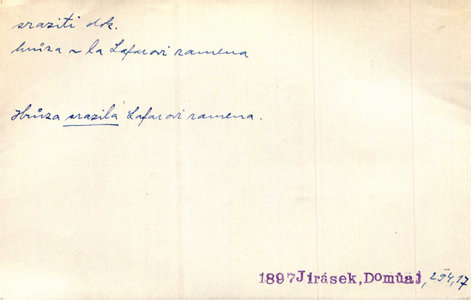 sraziti dok.
hrůza ~ la Lafarovi ramena
Hrůza srazila Lafarovi ramena.
1897 Jirásek, Domů aj, 294,17